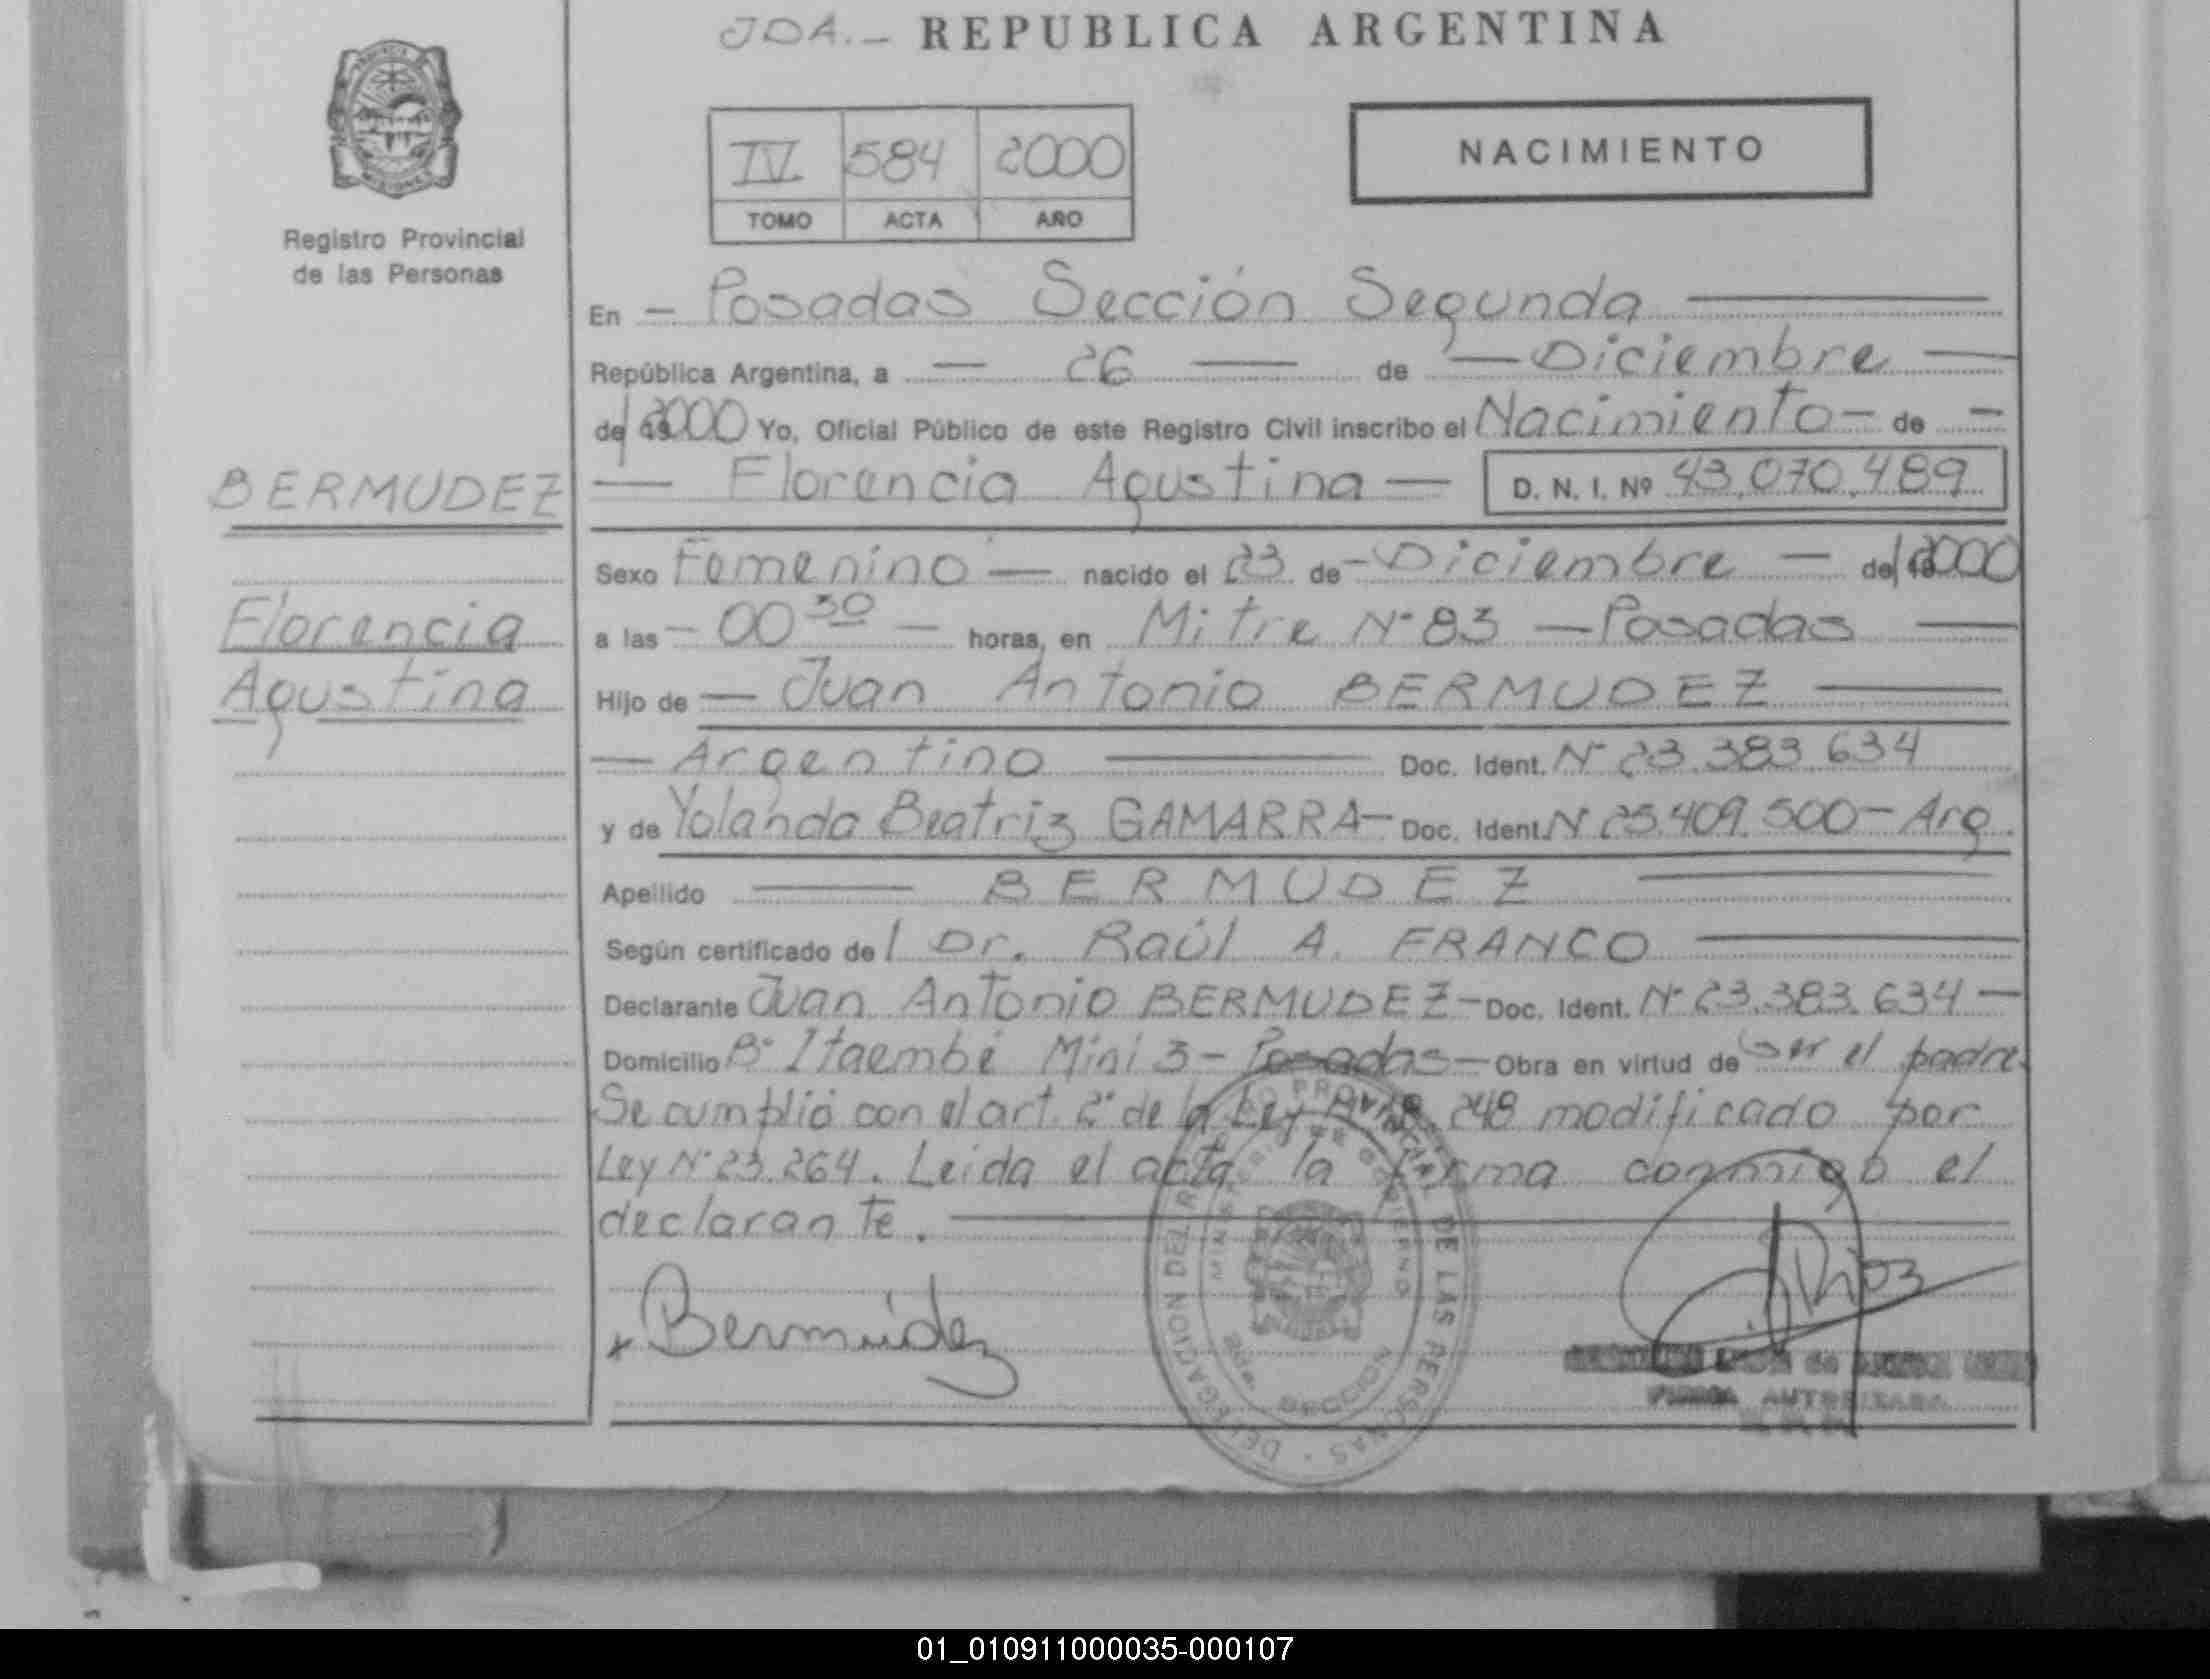 JDA.- REPUBLICA ARGENTINA
PROVINCIA
MISIONES
Registro Provincial
de las Personas
IV 584 2000
TOMO ACTA AÑO
NACIMIENTO
En - Posadas Sección Segunda
República Argentina, a - 26 - de - Diciembre -
del 2000 Yo, Oficial Público de este Registro Civil inscribo el Nacimiento - de -
BERMUDEZ
- Florencia Agustina - D. N. I. Nº 43.070.489
Sexo Femenino - nacido el 23 de - Diciembre - del 2000
Florencia
Agustina
a las - 00 30 - horas, en Mitre Nº 83 - Posadas -
Hijo de - Juan Antonio BERMUDEZ -
- Argentino - Doc. Ident. Nº 23.383.634
y de Yolanda Beatriz GAMARRA - Doc. Ident. Nº 25.409.500 - Arg.
Apellido - BERMUDEZ -
Según certificado del Dr. Raúl A. FRANCO -
Declarante Juan Antonio BERMUDEZ - Doc. Ident. Nº 23.383.634 -
Domicilio Bº Itaembé Mini 3 - Posadas - Obra en virtud de ser el padre.
Se cumplió con el art. 2º de la Ley Nº 18.248 modificado por
Ley Nº 23.264. Leida el acta la firma conmigo el
declarante.
x Bermúdez
DELEGACION DEL REGISTRO PROVINCIAL DE LAS PERSONAS
MINISTERIO DE GOBIERNO
2da. SECCION
FIRMA AUTORIZADA
01_010911000035-000107